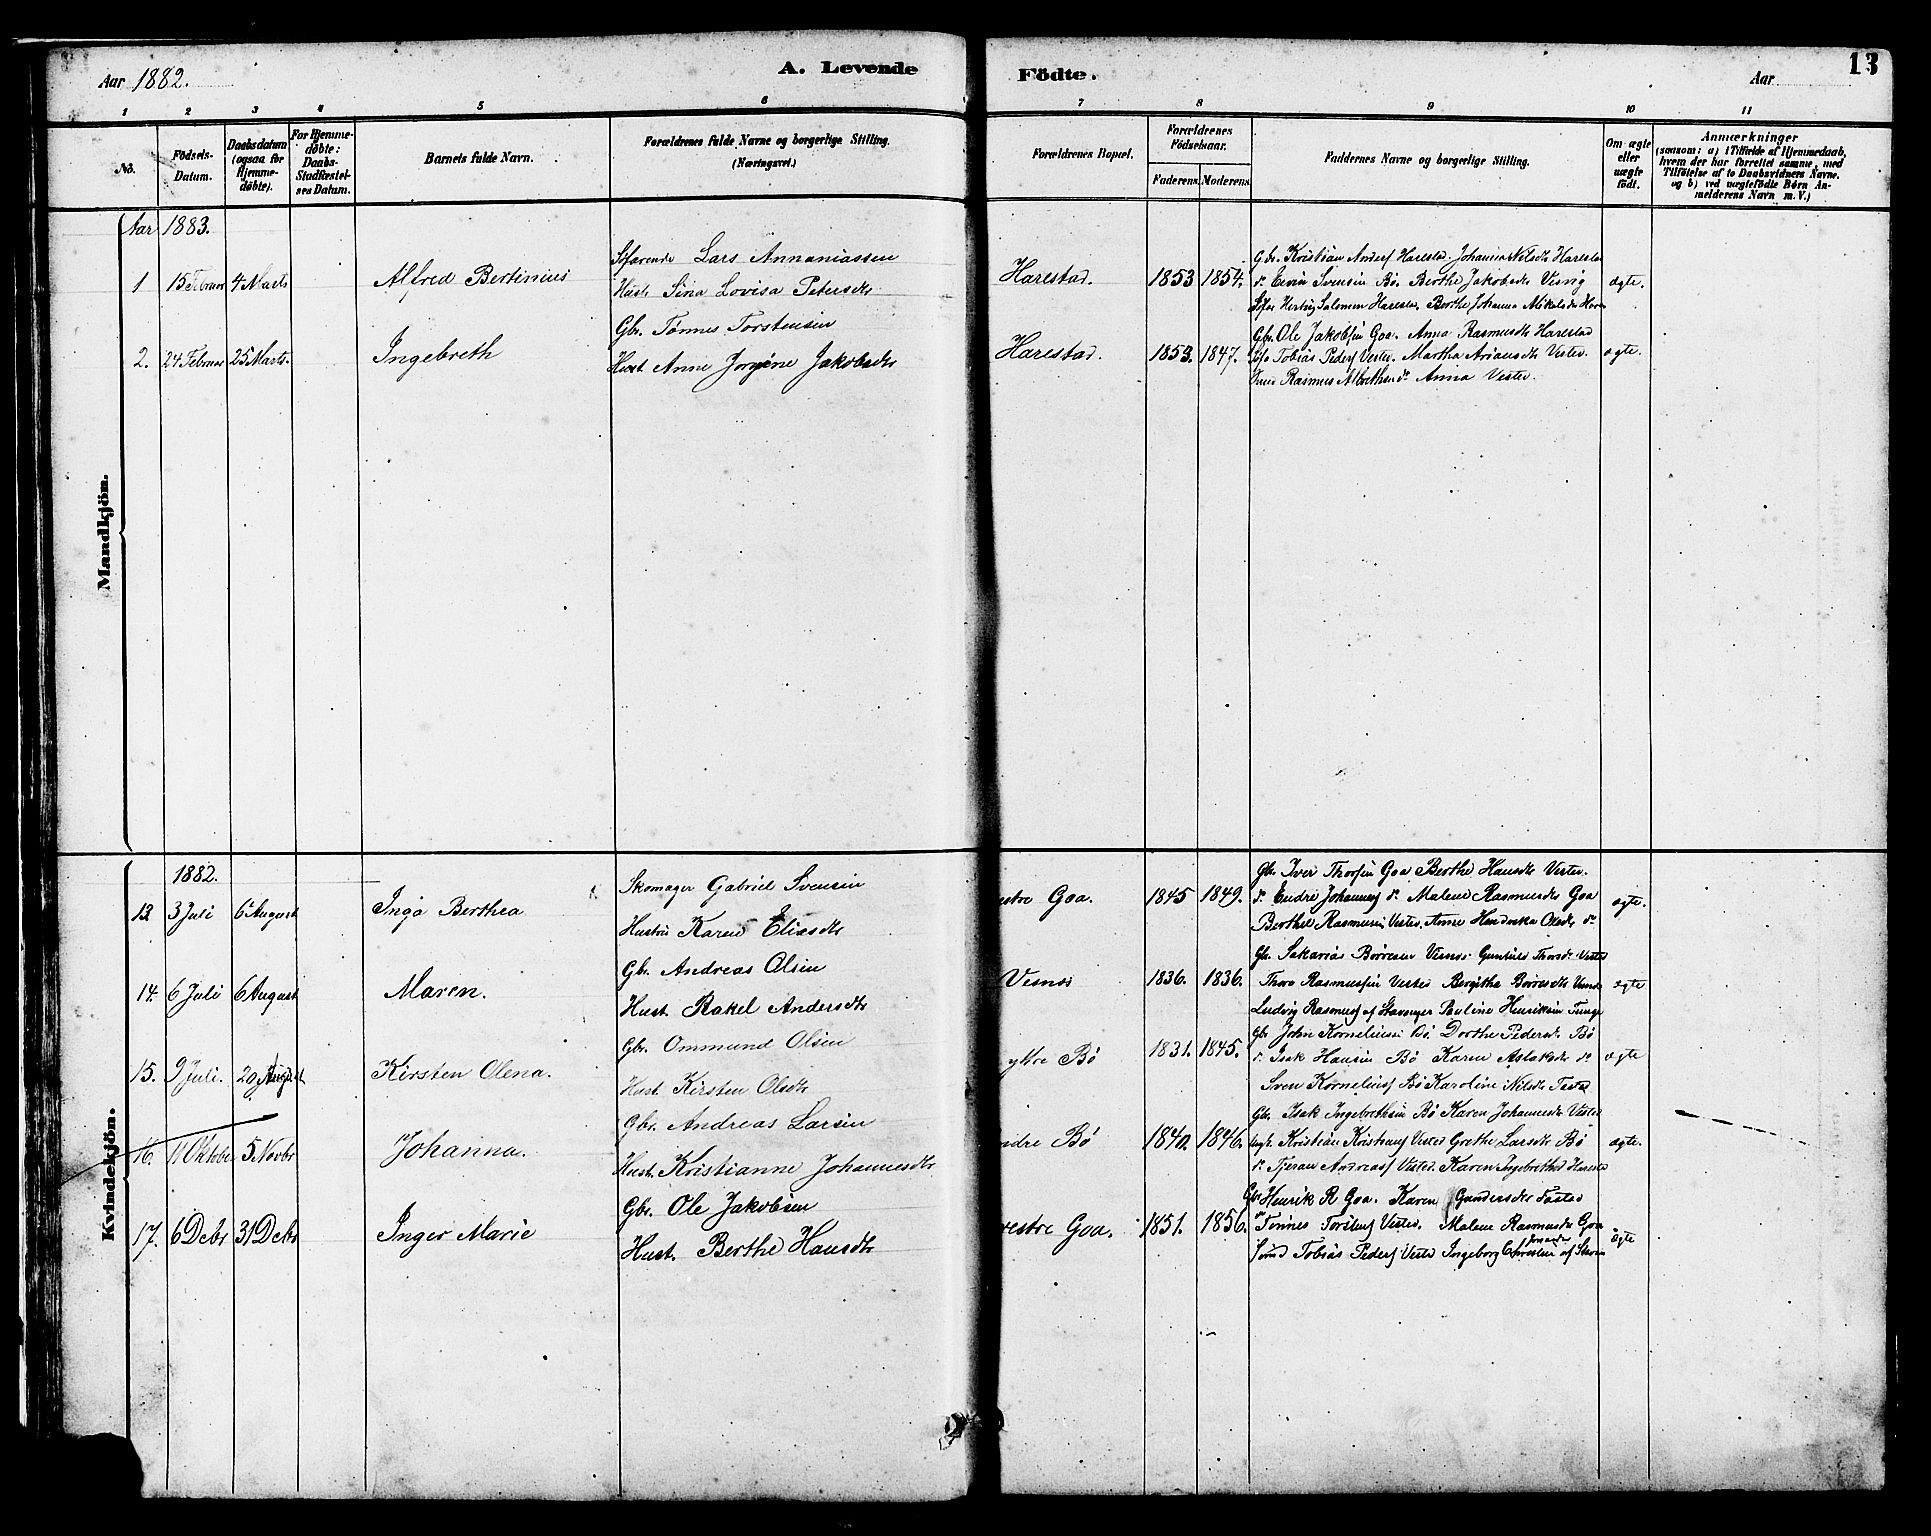 Aar 1882.
A. Levende
Födte.
Aar
13
1
2
3
4
5
6
7
8
9
10
11
No.
Födsels-Datum.
Daabsdatum (ogsaa for Hjemmedöbte).
For Hjemmedöbte: Daabs-Stadfæstelses Datum.
Barnets fulde Navn.
Forældrenes fulde Navne og borgerlige Stilling.
(Næringsvei.)
Forældrenes Bopæl.
Forældrenes Födselsaar.
Faderens.
Moderens.
Faddernes Navne og borgerlige Stilling.
Om ægte eller uægte födt.
Anmærkninger
(saasom: a) i Tilfælde af Hjemmedaab, hvem der har forrettet samme, med Tilföielse af to Daabsvidners Navne. og b) ved uægtefödte Börn Anmelderens Navn m. V.)
Mandkjön.
Aar 1883.
1 15 Februar 4 Marts Alfred Bertinius
Søfarende Lars Annaniassen
Hust. Sina Lovisa Petersdtr
Harestad. 1853 1854.
Gbr. Kristian Anders Harestad. Johanna Nilsdtr Harestad
Dº Svensen Bø. Berthe Jakobsdtr Visnig
Salomon Harestad, Berthe Johanna
ægte.
2. 24 Februar 25 Marts. Ingebreth
Gbr. Tønnes Torstensen
Hust Anne Jorgine Jakobsdtr
Harestad. 1853. 1847.
Gbr. Ole Jakobsen Goa. Anna Rasmusdtr Harestad
Tobias Peders Vested. Martha Vested.
Rasmus Albrethsen dº Anna Vested.
ægte.
Kvindekjön.
1882.
13. 3 Juli 6 August Inga Berthea
Skomager Gabriel Svensen
Hustru Karen Eliasdtr
Goa. 1845 1849.
Gbr. Iver Thorsen Goa Berthe Hansdtr Vested.
Dº Endre Johannes Dº Malene Rasmusdtr Goa
Berthel Rasmusen Vested. Anne Olsdtr dº
ægte.
14. 6 Juli 6 August Maren.
Gbr. Andreas Olsen
Hust Rakel Andersdtr
Visnes 1836. 1836.
Gbr. Sakarias Børresen Visnes. Gunhild Thorsdtr Vested
Thore Rasmussen Vested Bergitha Børresdtr
Ludvig Rasmus af Stavanger Pauline Henriksen Tunge
ægte
15. 9 Juli. 20 August Kirsten Olena.
Gbr. Ommund Olsen
Hust Kirsten Olsdtr
ytre Bø 1831. 1845.
Gbr John Kornelius Bø Dorthe Pedersdtr Bø
Dº Isak Hansen Bø Karen Aslaksdtr dº
Sven Kornelius Bø Karoline Nilsdtr Tastad
ægte
16. 11 Oktober 5 Novbr Johanna.
Gbr. Andreas Larsen
Hust. Kristianne Johannesdtr
ndre Bø 1840. 1846.
Gbr. Isak Ingebrethsen Bø Karen Johannesdtr Vested
Kristian Kristians Vested Grethe Larsdtr Bø
Dº Tjeran Andreas Vested. Karen Ingebrethsd Harestad
ægte.
17. 6 Debr 31 Debr Inger Marie
Gbr. Ole Jakobsen
Hust. Berthe Hansdtr
vestre Goa. 1851. 1856.
Gbr Henrik R Goa. Karen Gundersdtr Tastad
Dº Tønnes Torstens Vested. Malene Rasmusdtr Goa
Tobias Peders Vested Ingeborg af Stavan
ægte